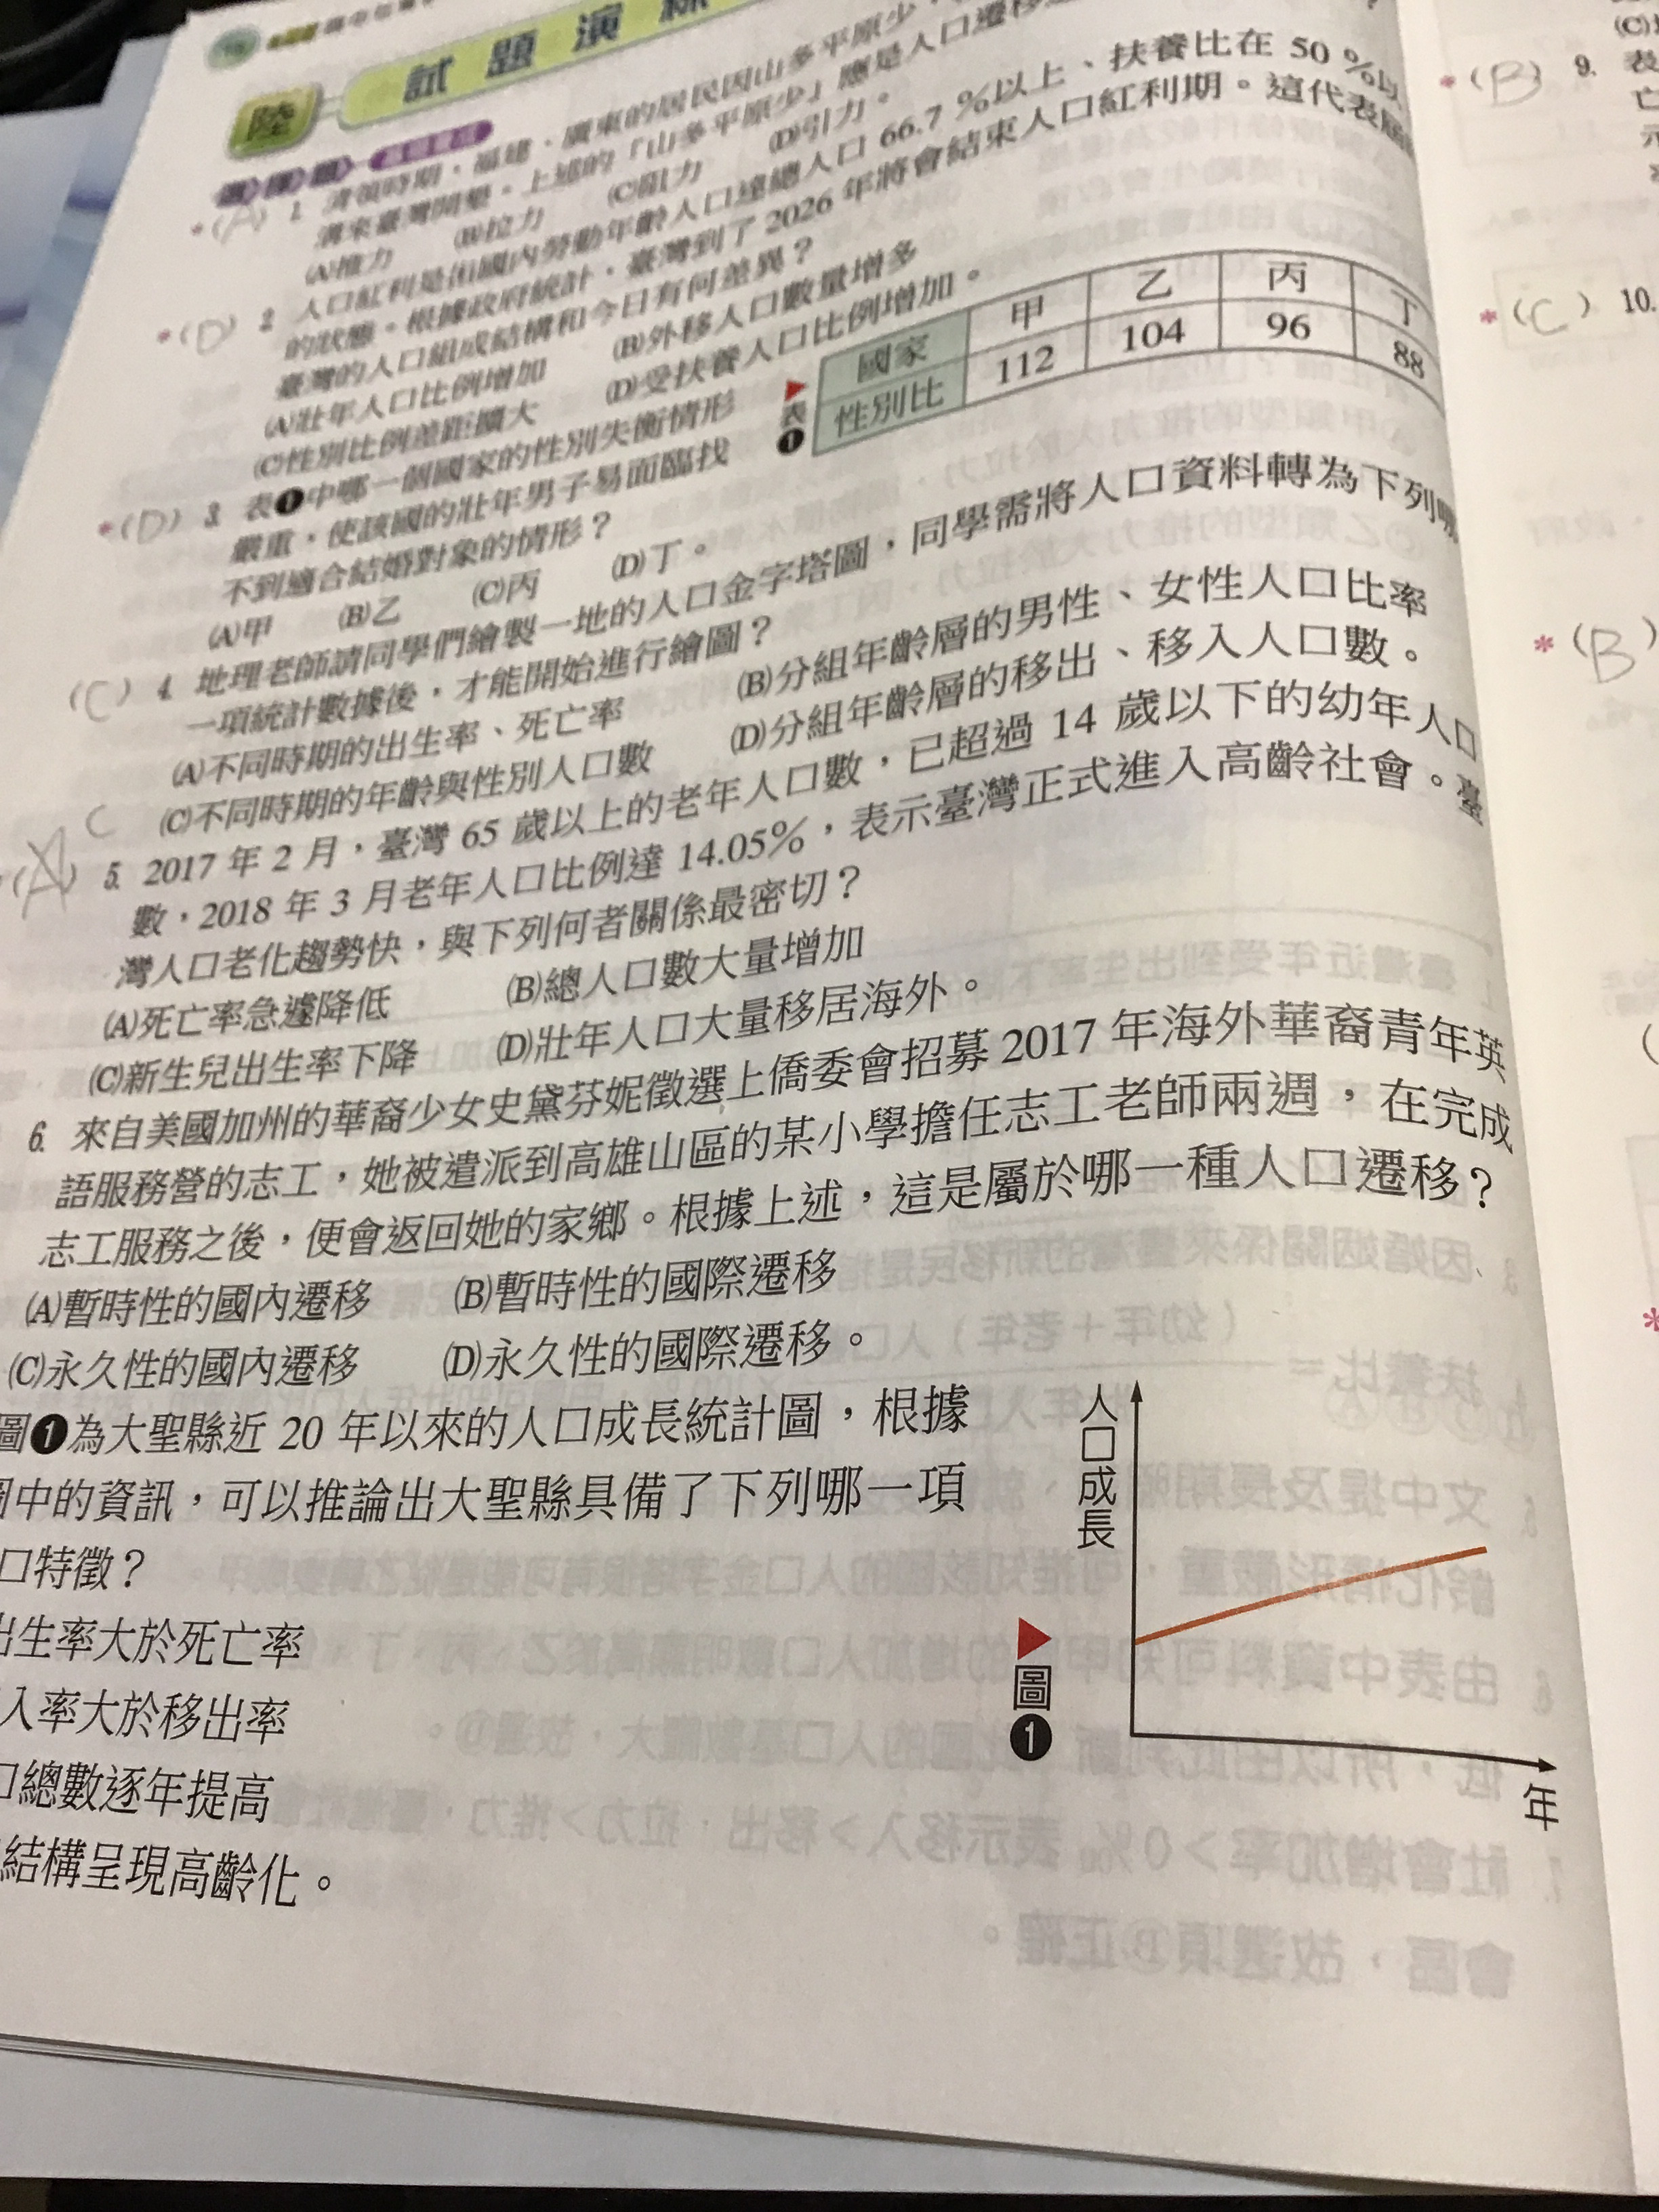 陸 試題演練
*(A) 1. 清領時期，福建、廣東的居民因山多平原少，
來臺灣開墾。上述的「山多平原少」應是人口遷移
(A)推力 (B)拉力 (C)阻力 (D)引力。
*(D) 2. 人口紅利是指國內勞動年齡人口達總人口 66.7 %以上、扶養比在 50 %以
的狀態。根據政府統計，臺灣到了 2026 年將會結束人口紅利期。這代表屆
臺灣的人口組成結構和今日有何差異？
(A)壯年人口比例增加 (B)外移人口數量增多
(C)性別比例差距擴大 (D)受扶養人口比例增加。
*(D) 3. 表❶中哪一個國家的性別失衡情形
嚴重，使該國的壯年男子易面臨找
不到適合結婚對象的情形？
(A)甲 (B)乙 (C)丙 (D)丁。
▶表❶
國家 甲 乙 丙 丁
性別比 112 104 96 88
(C) 4. 地理老師請同學們繪製一地的人口金字塔圖，同學需將人口資料轉為下列哪
一項統計數據後，才能開始進行繪圖？
(A)不同時期的出生率、死亡率 (B)分組年齡層的男性、女性人口比率
(C)不同時期的年齡與性別人口數 (D)分組年齡層的移出、移入人口數。
C
(A) 5. 2017 年 2 月，臺灣 65 歲以上的老年人口數，已超過 14 歲以下的幼年人口
數，2018 年 3 月老年人口比例達 14.05%，表示臺灣正式進入高齡社會。臺
灣人口老化趨勢快，與下列何者關係最密切？
(A)死亡率急遽降低 (B)總人口數大量增加
(C)新生兒出生率下降 (D)壯年人口大量移居海外。
6. 來自美國加州的華裔少女史黛芬妮徵選上僑委會招募 2017 年海外華裔青年英
語服務營的志工，她被遣派到高雄山區的某小學擔任志工老師兩週，在完成
志工服務之後，便會返回她的家鄉。根據上述，這是屬於哪一種人口遷移？
(A)暫時性的國內遷移 (B)暫時性的國際遷移
(C)永久性的國內遷移 (D)永久性的國際遷移。
圖❶為大聖縣近 20 年以來的人口成長統計圖，根據
圖中的資訊，可以推論出大聖縣具備了下列哪一項
口特徵？
出生率大於死亡率
入率大於移出率
口總數逐年提高
結構呈現高齡化。
人口成長
年
▶圖❶
*(B) 9. 表
亡
*(C) 10.
*(B)
*